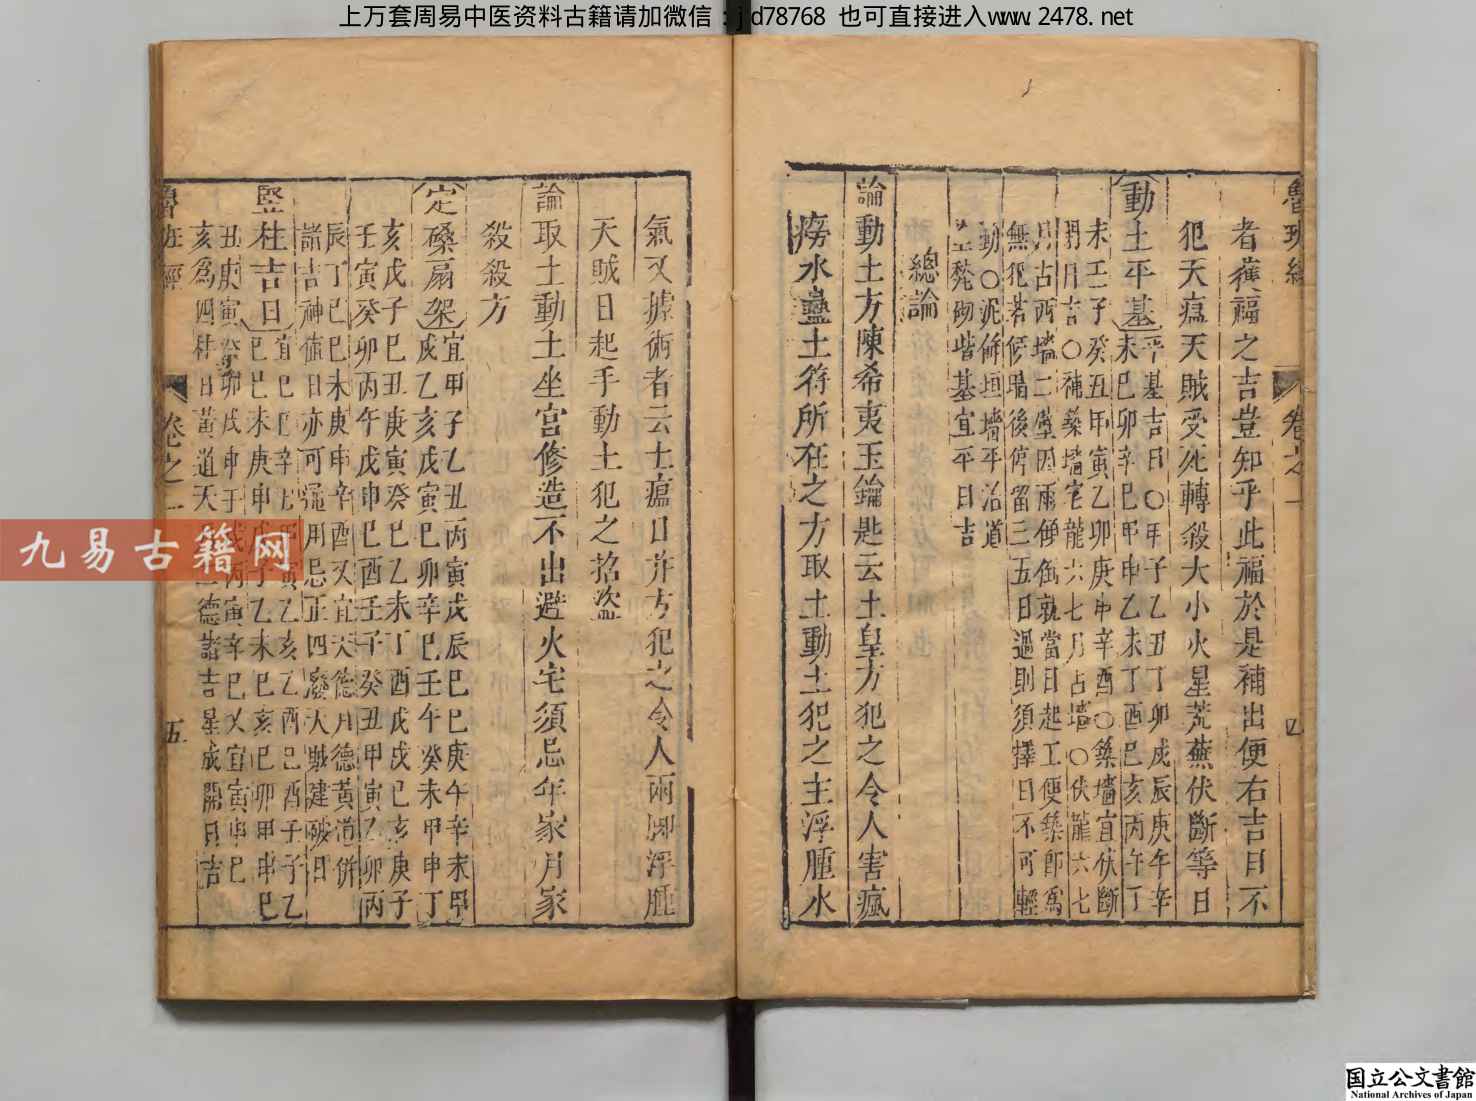 上万套周易中医资料古籍请加微信：jd78768 也可直接进入www.2478.net
者獲福之吉豈知乎此福於是補出便右吉日不
犯天瘟天賊受死轉殺大小火星荒蕪伏斷等日
動土平基
平基吉日〇甲子乙丑丁卯戊辰庚午辛
未巳卯辛巳甲申乙未丁酉巳亥丙午丁
未壬子癸丑甲寅乙卯庚申辛酉〇築墻宜伏斷
閉月吉〇補築墻宅龍六七月占墻〇伏龍六七
月占西墻二壁因雨傾倒就當日起工便築即爲
無犯若俟晴後停留三五日過則須擇日不可輕
動〇泥餙垣墻平治道
甃砌皆基宜平日吉
總論
論動土方陳希夷玉鑰匙云土皇方犯之令人害瘋
癆水蠱土符所在之方取土動土犯之主浮腫水
氣又據術者云土瘟日并方犯之令人兩脚浮腫
天賊日起手動土犯之招盜
論取土動土坐宮修造不出避火宅須忌年家月家
殺殺方
定磉扇架
宜甲子乙丑丙寅戊辰巳巳庚午辛未甲
戌乙亥戊寅巳卯辛巳壬午癸未甲申丁
亥戊子巳丑庚寅癸巳乙未丁酉戊戌巳亥庚子
壬寅癸卯丙午戊申巳酉壬子癸丑甲寅乙卯丙
辰丁巳巳未庚申辛酉又宜天德月德黃道併
諸吉神值日亦可通用忌正四廢大賊建破日
竪柱吉日
宜巳巳辛丑甲寅乙亥乙酉巳酉子子乙
巳巳未庚申戊子乙未巳亥巳卯甲申巳
丑庚寅癸卯戊申壬戌丙寅辛巳又宜寅申巳
亥爲四柱日黃道天月二德諸吉星成開日吉
魯班經
卷之一
四
魯班經
卷之一
五
九易古籍网
国立公文書館
National Archives of Japan